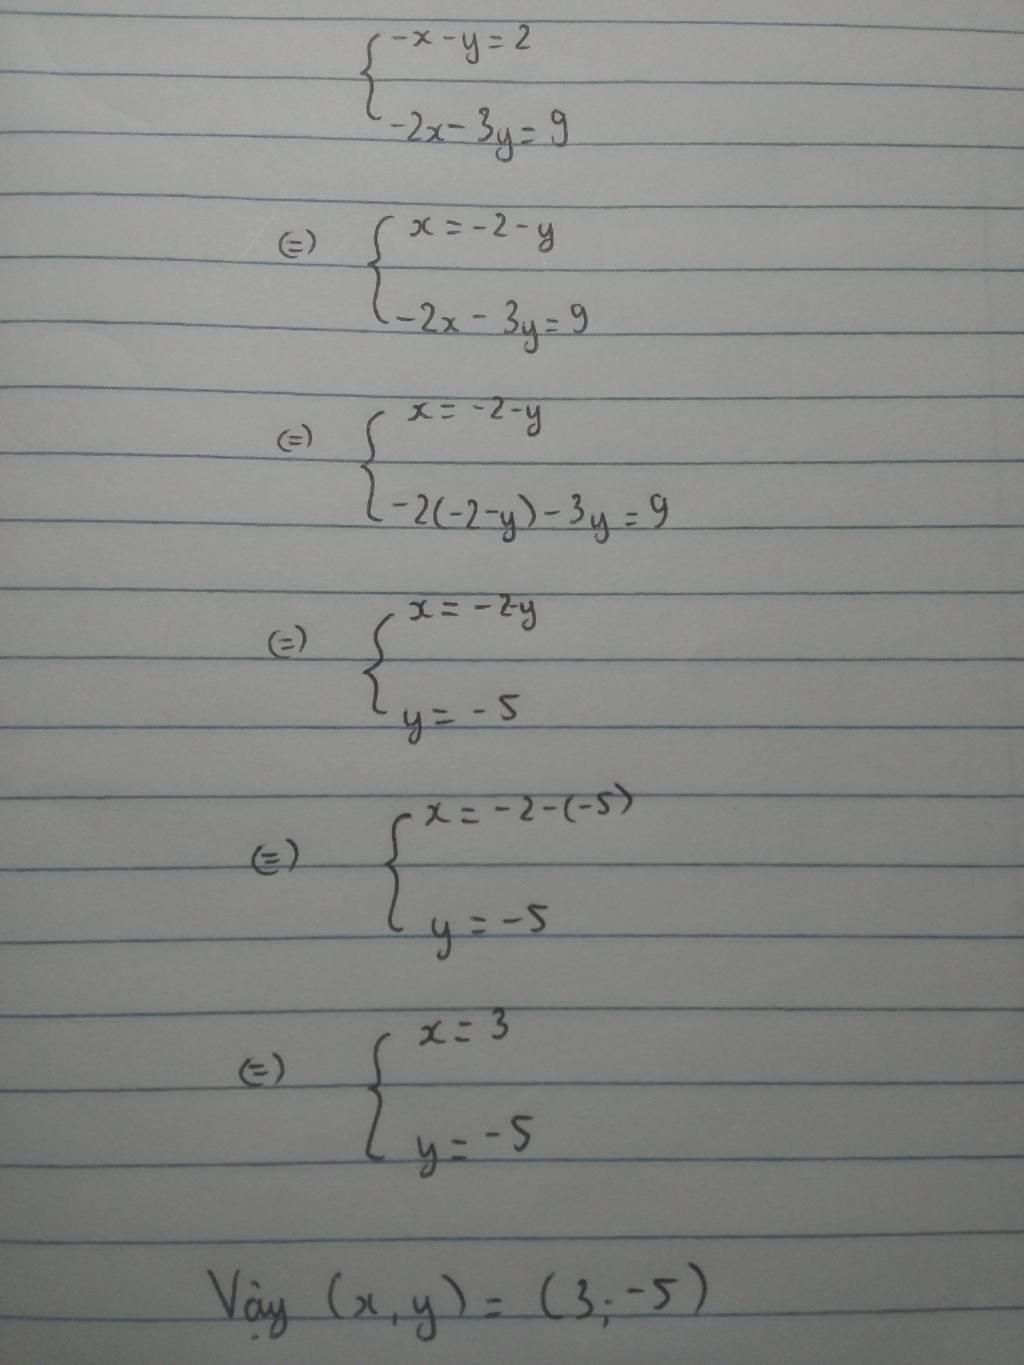 -x - y = 2
-2x - 3y = 9
(=) x = -2 - y
-2x - 3y = 9
(=) x = -2 - y
-2(-2-y) - 3y = 9
(=) x = -2-y
y = -5
(=) x = -2-(-5)
y = -5
(=) x = 3
y = -5
Vậy (x, y) = (3; -5)